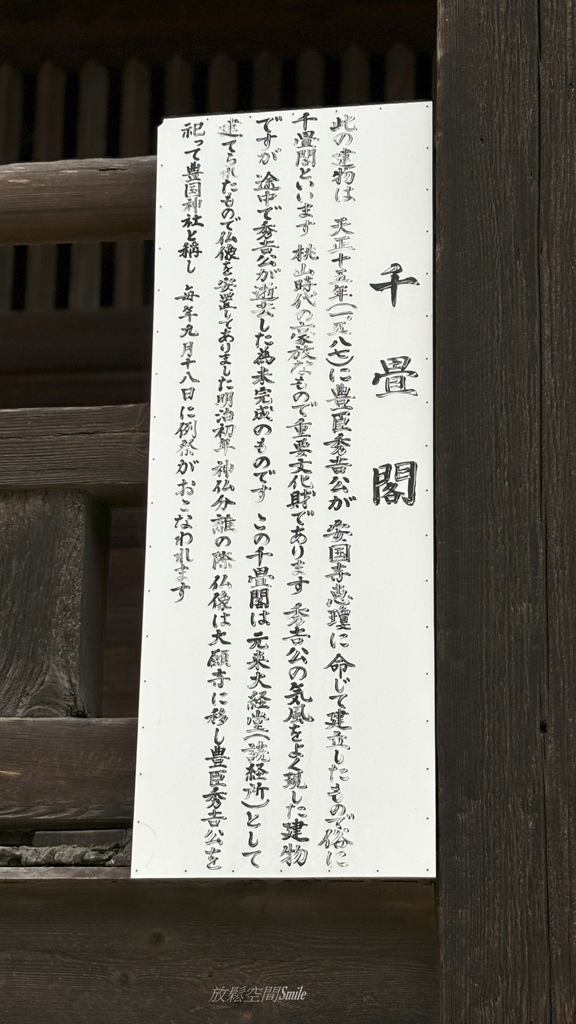 千畳閣
此の建物は 天正十五年(一五八七)に豊臣秀吉公が 安国寺恵瓊に 命じて建立したもので俗に
千畳閣といいます 桃山時代の豪放なもので重要文化財であります 秀吉公の気風をよく現した建物
ですが 途中で秀吉公が逝去した為未完成のものです この千畳閣は 元来大経堂(読経所)として
建てられたもので仏像を安置してありました明治初年 神仏分離の際 仏像は大願寺に移し豊臣秀吉公を
祀って豊国神社と称し 毎年九月十八日に例祭がおこなわれます
放鬆空間Smile